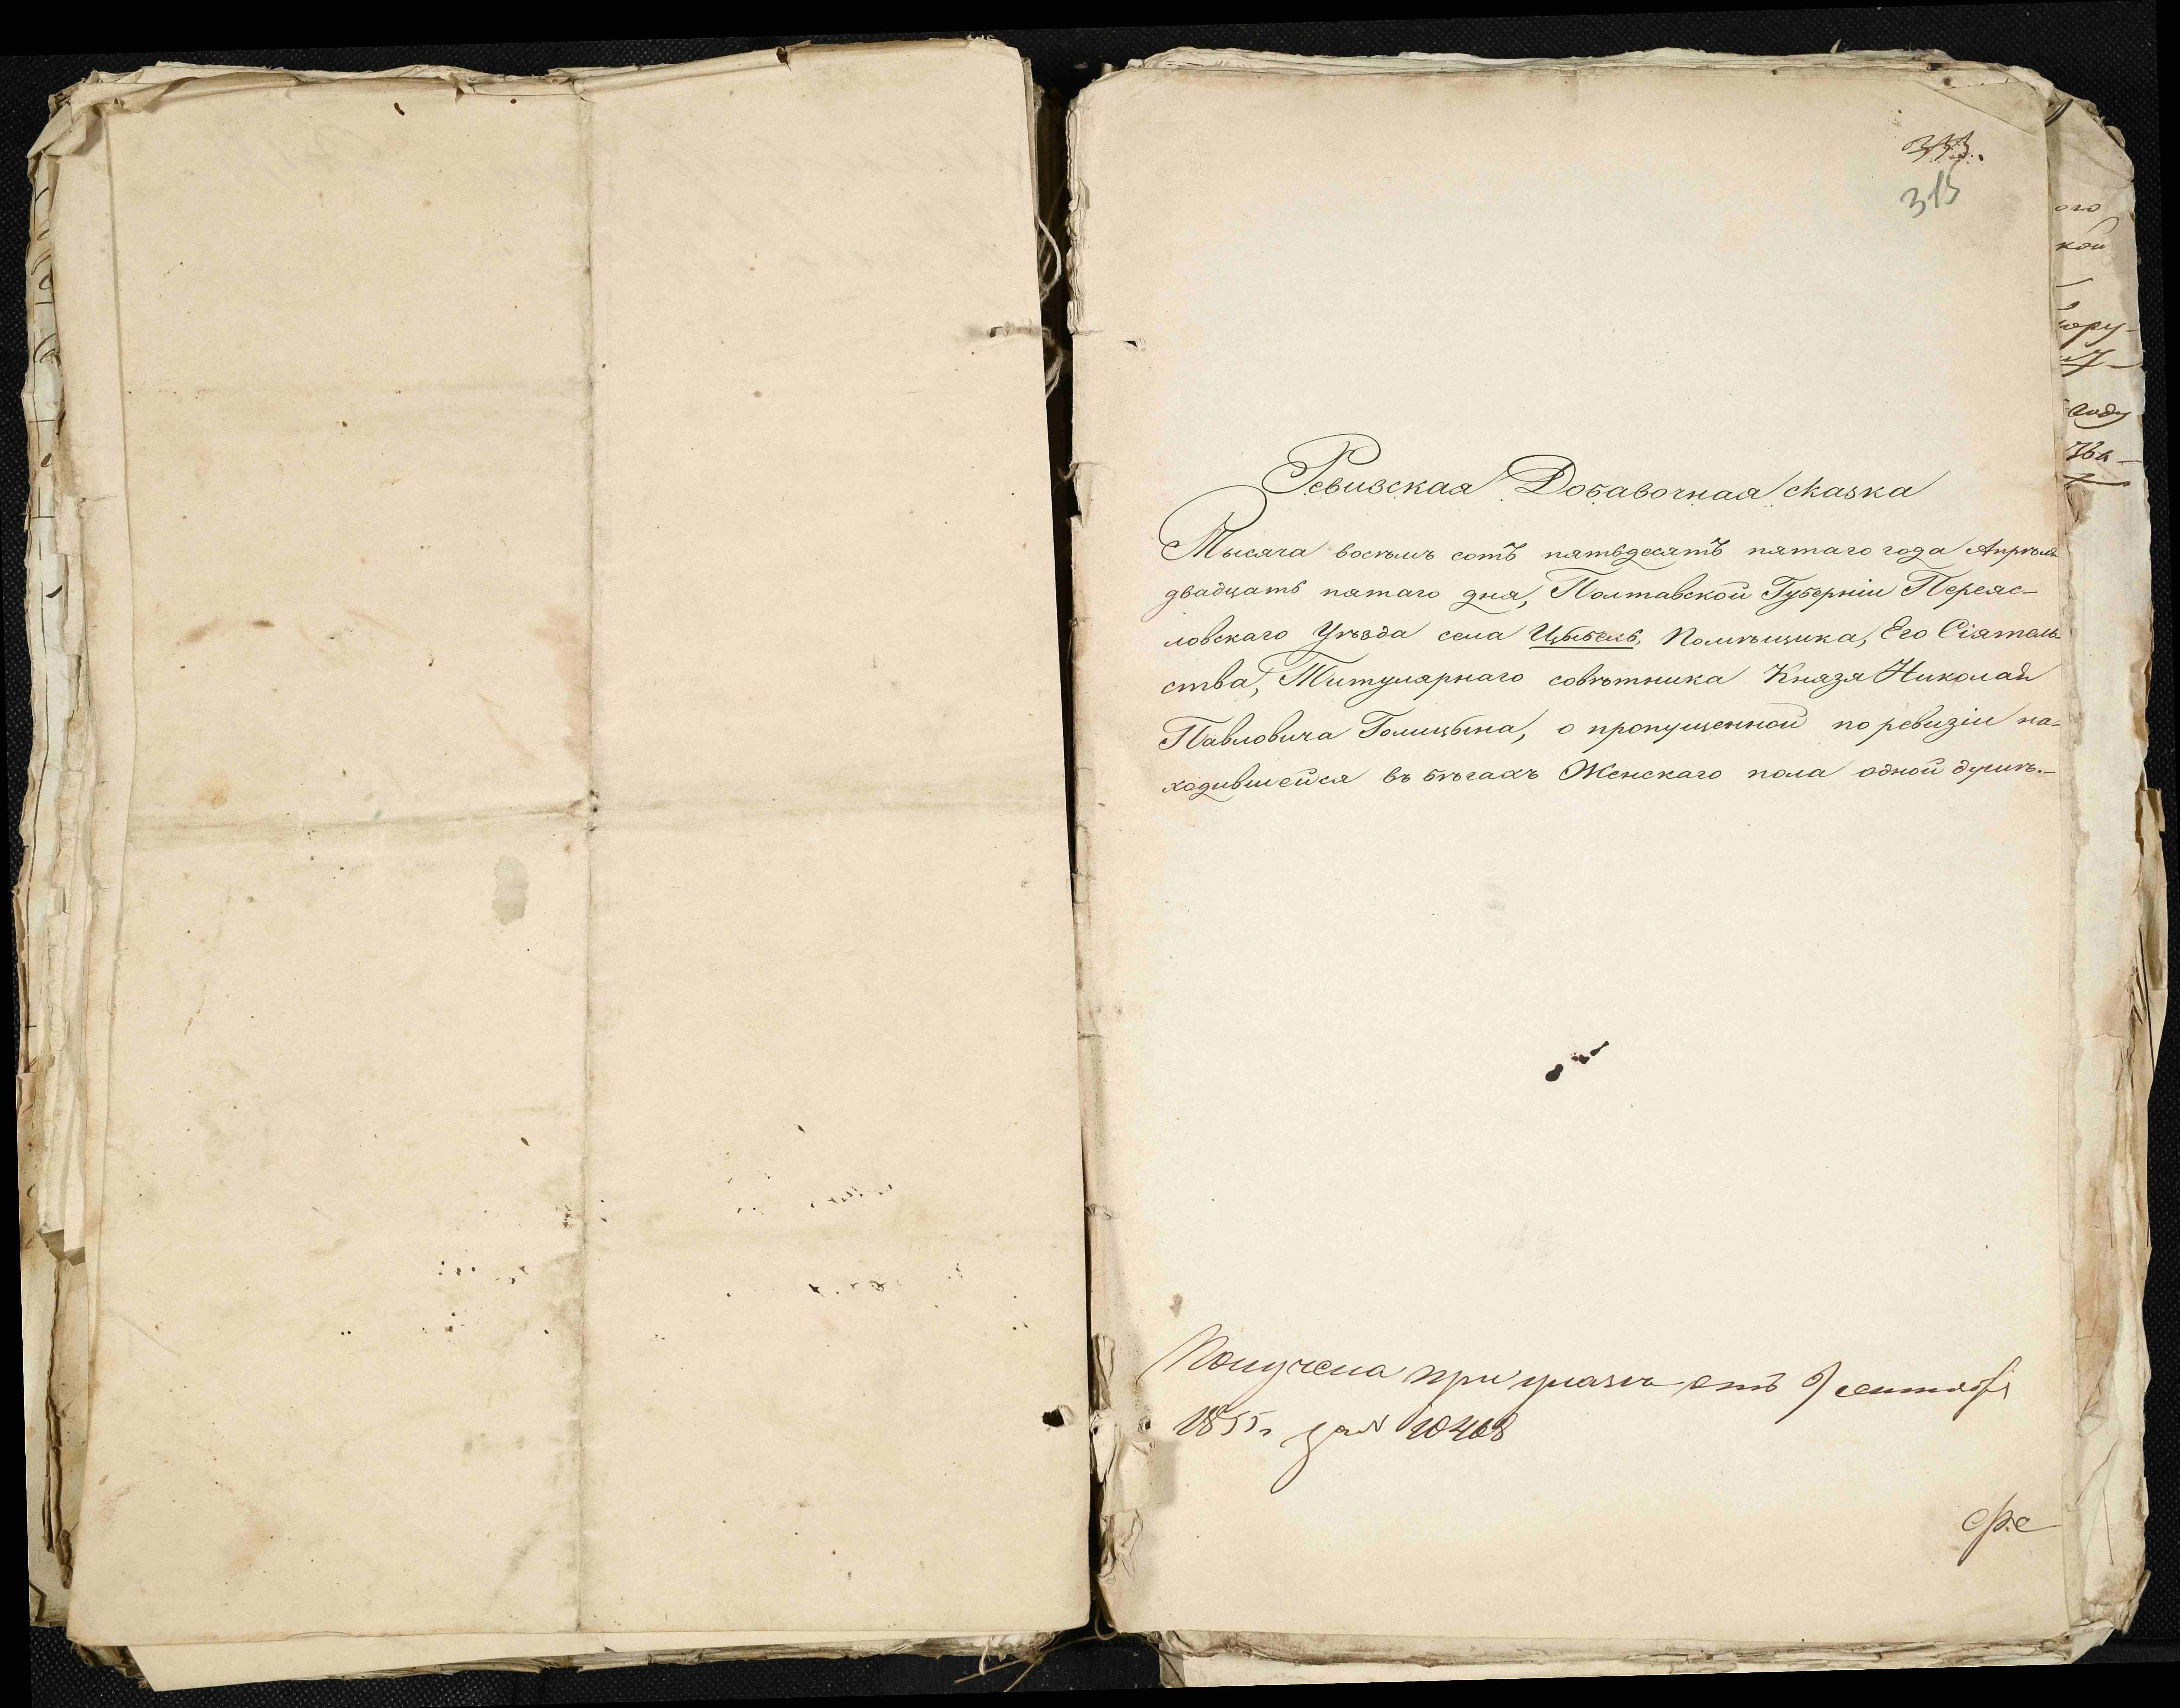 313.
315
Ревизская Добавочная сказка
Тысяча восѣмь сотъ пятьдесятъ пятаго года Апрѣля
двадцать пятаго дня, Полтавской Губерніи Переяс-
ловскаго Уѣзда села Цыбель, Помѣщика, Его Сіятель-
ства, Титулярнаго совѣтника Князя Николая
Павловича Голицына, о пропущенной по ревизіи на-
ходившейся въ бѣгахъ Женскаго пола одной душѣ.-
Получена при указѣ отъ 9 сентября
1855 г за № 10468
ого
кой
году